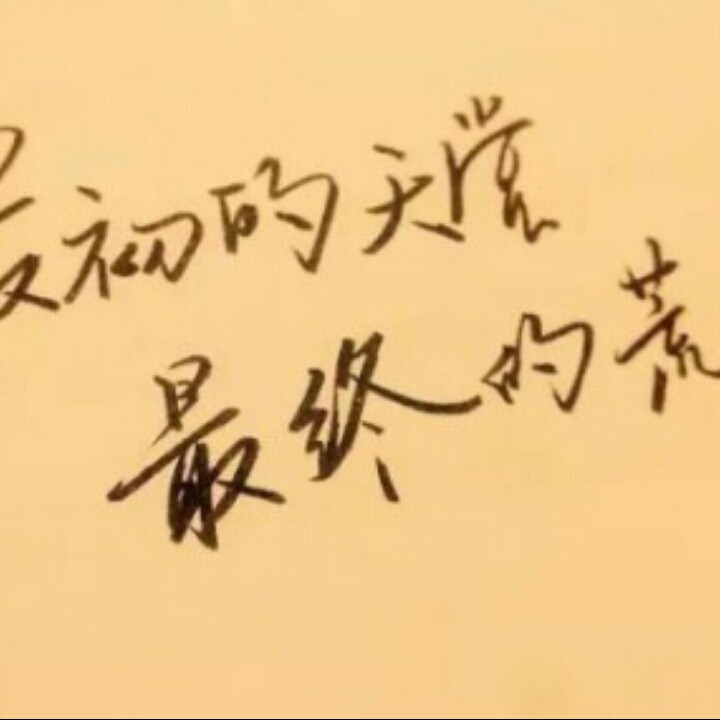 最初的天堂
最终的荒